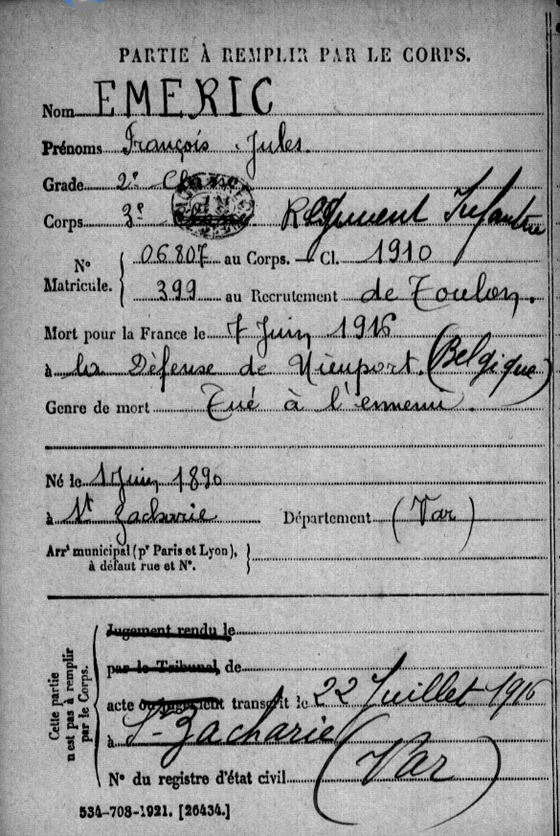 PARTIE À REMPLIR PAR LE CORPS.
Nom EMERIC
Prénoms François Jules
Grade 2e
Corps 3e Régiment Infanterie
No Matricule. 06807 au Corps. — Cl. 1910
399 au Recrutement de Toulon.
Mort pour la France le 7 Juin 1916
à la Défense de Nieuport. (Belgique)
Genre de mort Tué à l'ennemi.
Né le 1 Juin 1890
à St Zacharie Département (Var)
Arrt municipal (pr Paris et Lyon),
à défaut rue et No.
Cette partie
n'est pas à remplir
par le Corps.
Jugement rendu le
par le Tribunal, de
acte ou jugement transcrit le 22 Juillet 1916
à St Zacharie
(Var)
No du registre d'état civil
534-708-1921. [26434.]